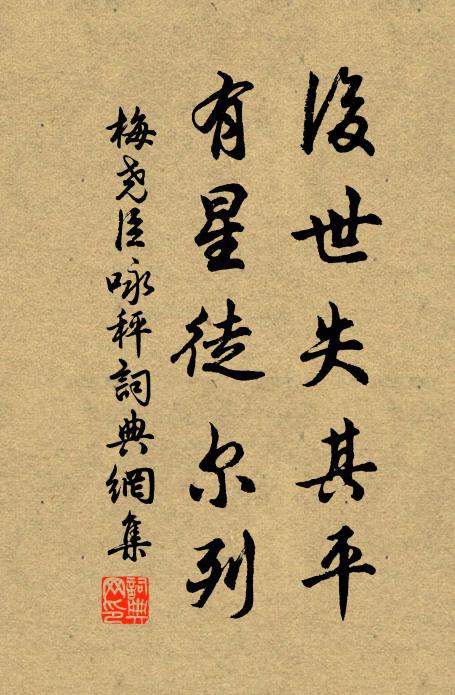 後世失其平
有星徒尔列
梅尧臣咏秤詞典網集
詞典网印